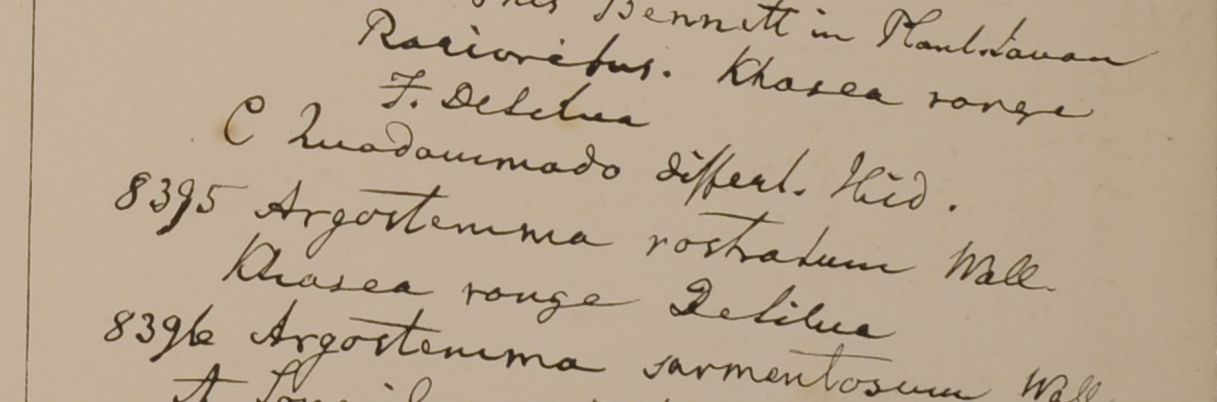 Bennett in Plant. Javan
Rarioribus. Khasea range
F. De Silva
C Quodammodo differt. Ibid.
8395 Argostemma rostratum Wall.
Khasea range De Silva
8396 Argostemma sarmentosum Wall.